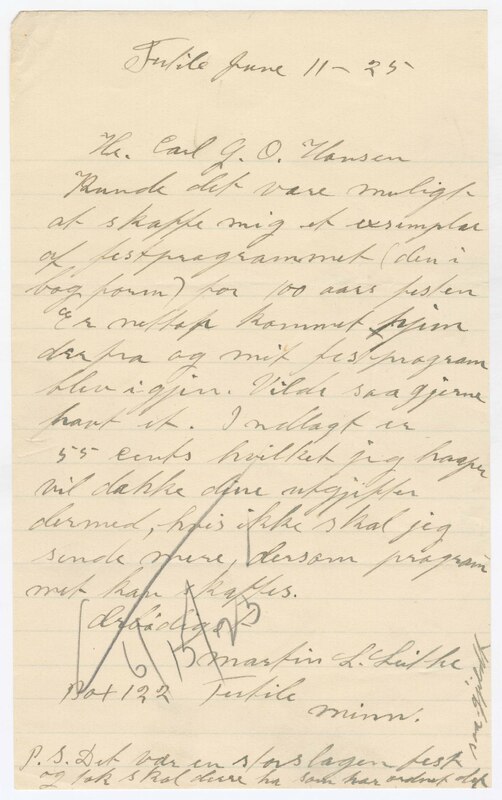 Fertile June 11 - 25
Hr. Carl G. O. Hansen
Kunde det være muligt
at skaffe mig et exsimplar
af festprogrammet (den i
bogform) for 100 aars festen
Er nettop kommet hjem
derfra og mit festprogram
blev igjen. Vilde saa gjerne
havt et. Indlagt er
55 cents hvilket jeg haaper
vil dække dine utgifter
dermed, hvis ikke skal jeg
sende mere, dersom program
met kan skaffes.
Ærbødigst
6/15/25
Martin L.
Box 122 Fertile
Minn.
P.S. Det var en storslagen fest
og tak skal dere ha som har ordnet det